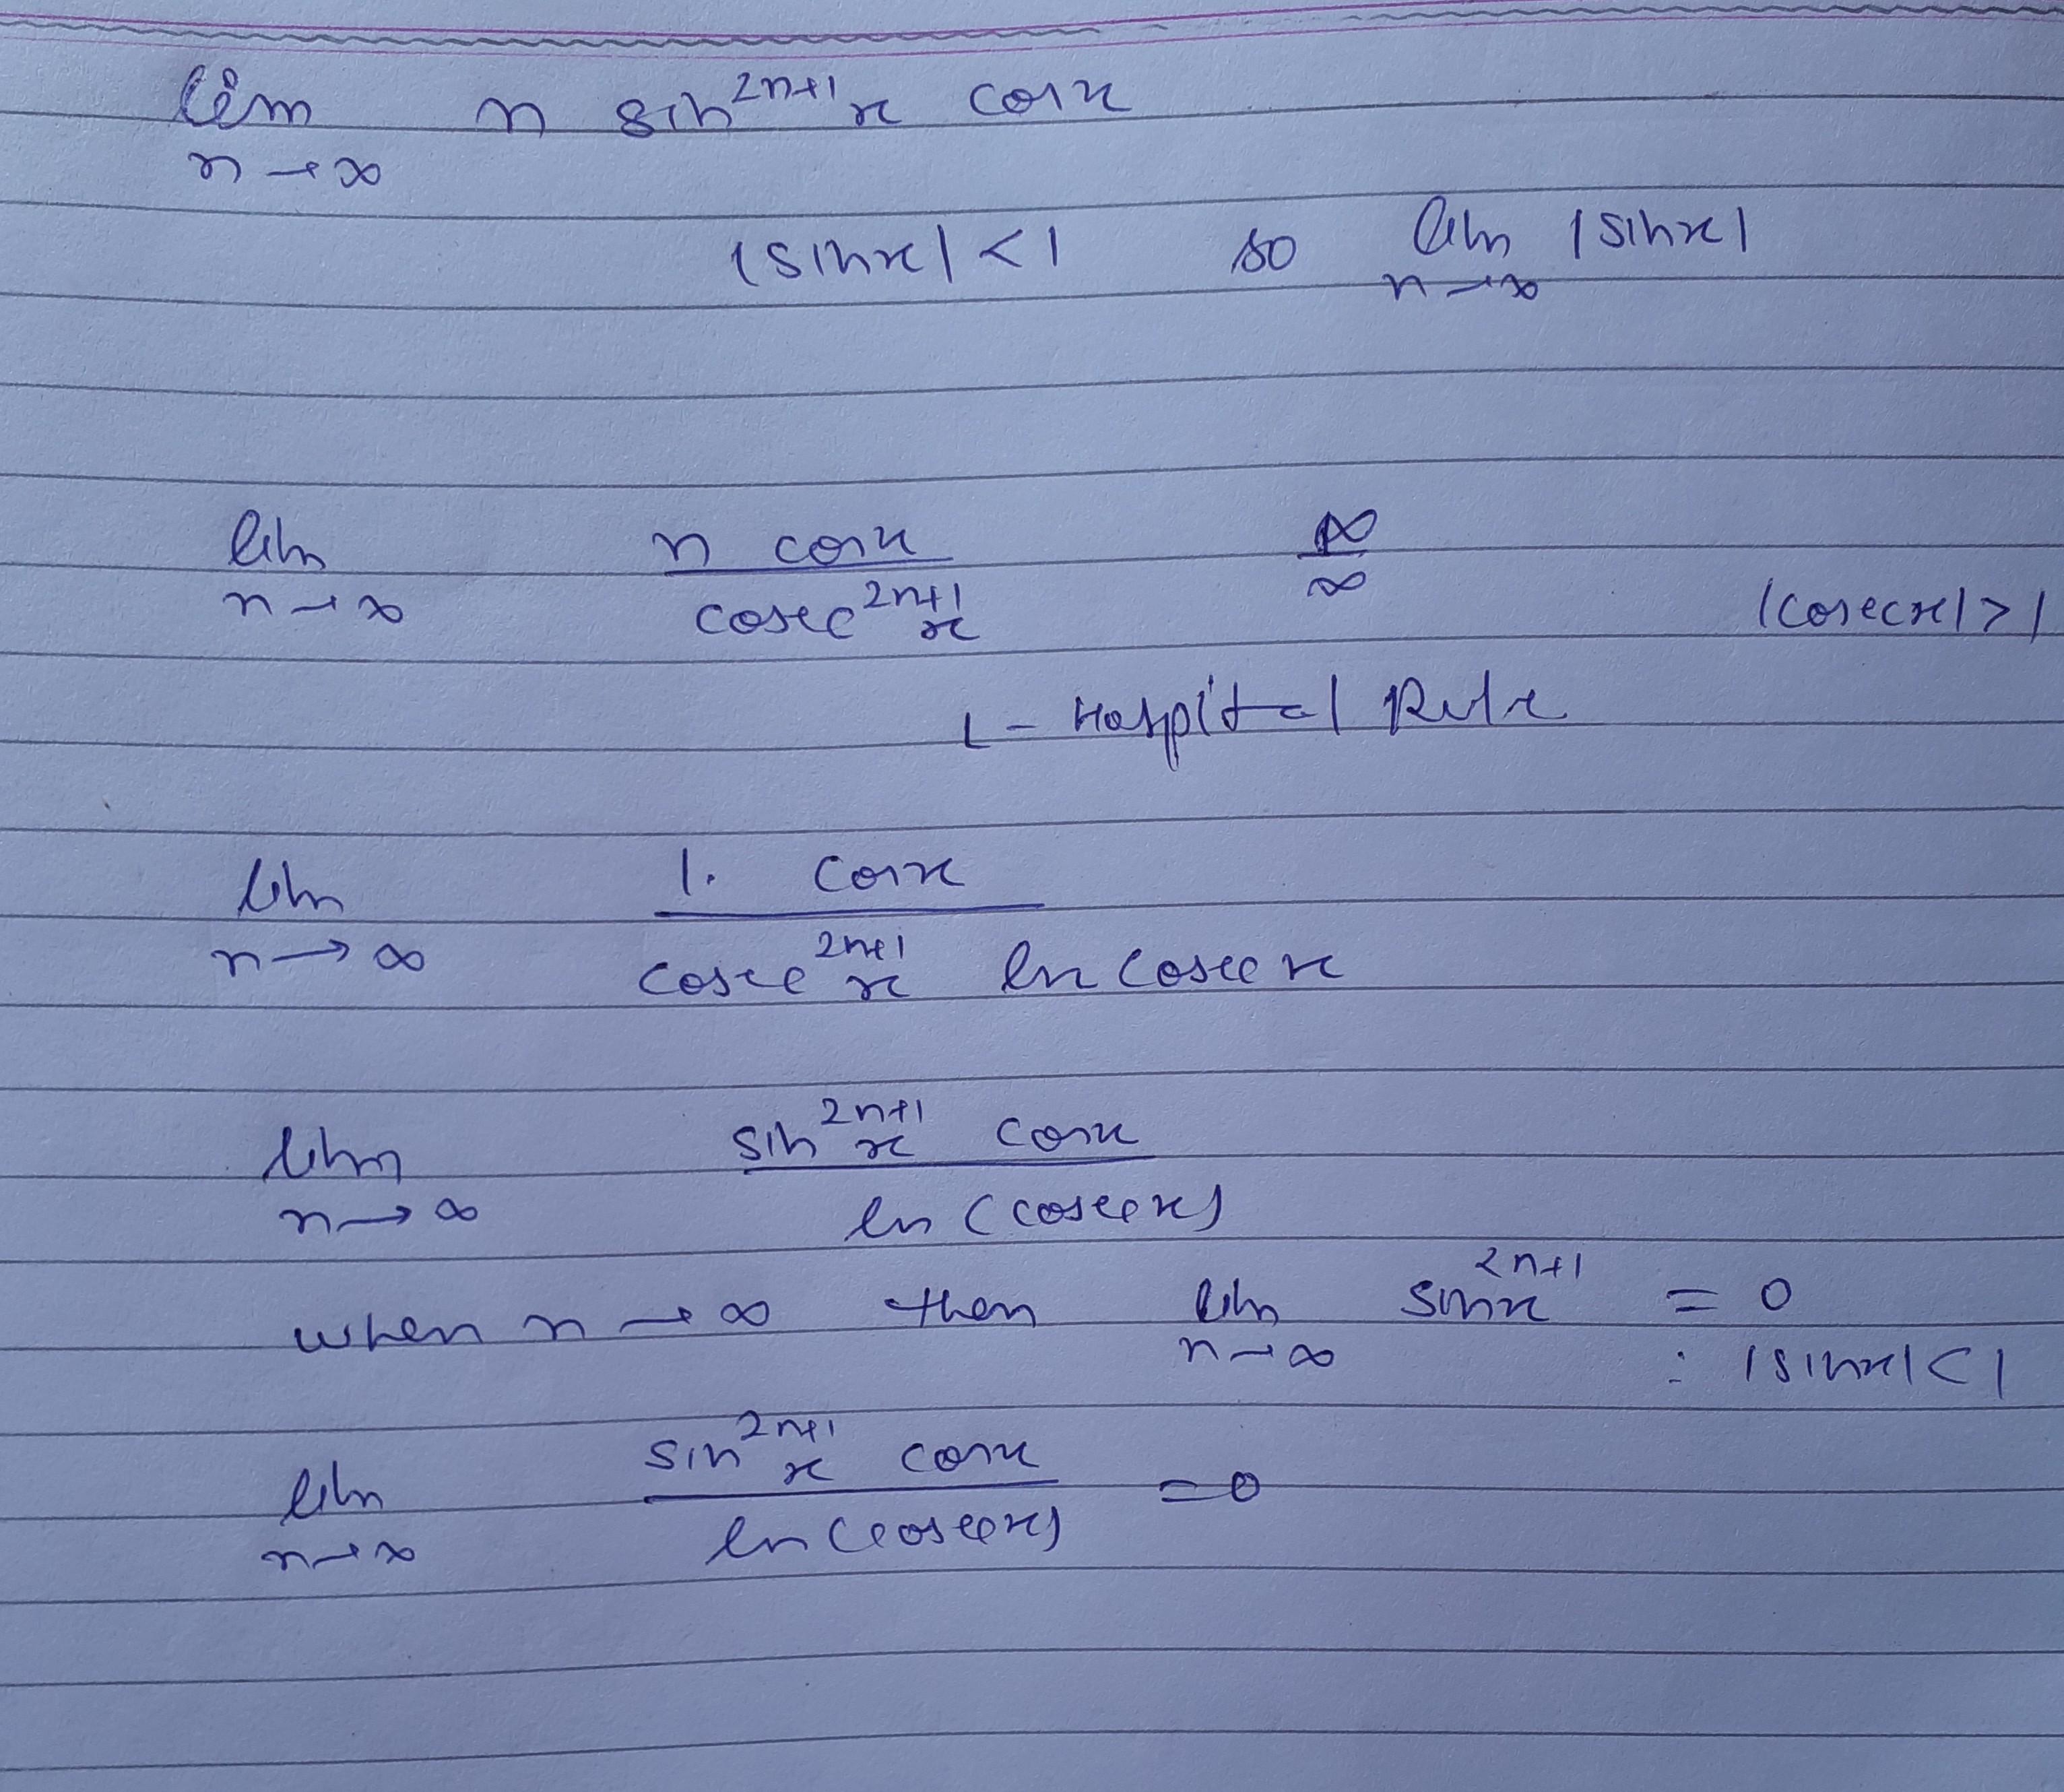 lim n sin^{2n+1} x cosx
n→∞
|sinx| < 1 so lim |sinx|
n→∞
lim n cosx ∞
n→∞ cosec^{2n+1} x ∞
|cosecx| > 1
L-Hospital Rule
lim 1. cosx
n→∞ cosec^{2n+1} x ln cosec x
lim sin^{2n+1} x cosx
n→∞ ln (cosecx)
when n→∞ then lim sinx^{2n+1} = 0
n→∞ : |sinx| < 1
lim sin^{2n+1} x cosx = 0
n→∞ ln (cosecx)